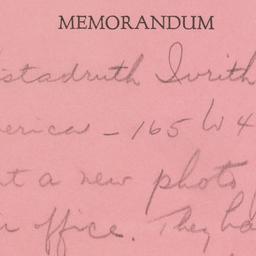 MEMORANDUM
istadruth Ivrith
erica - 165 W 4
t a new photo
office. They ha